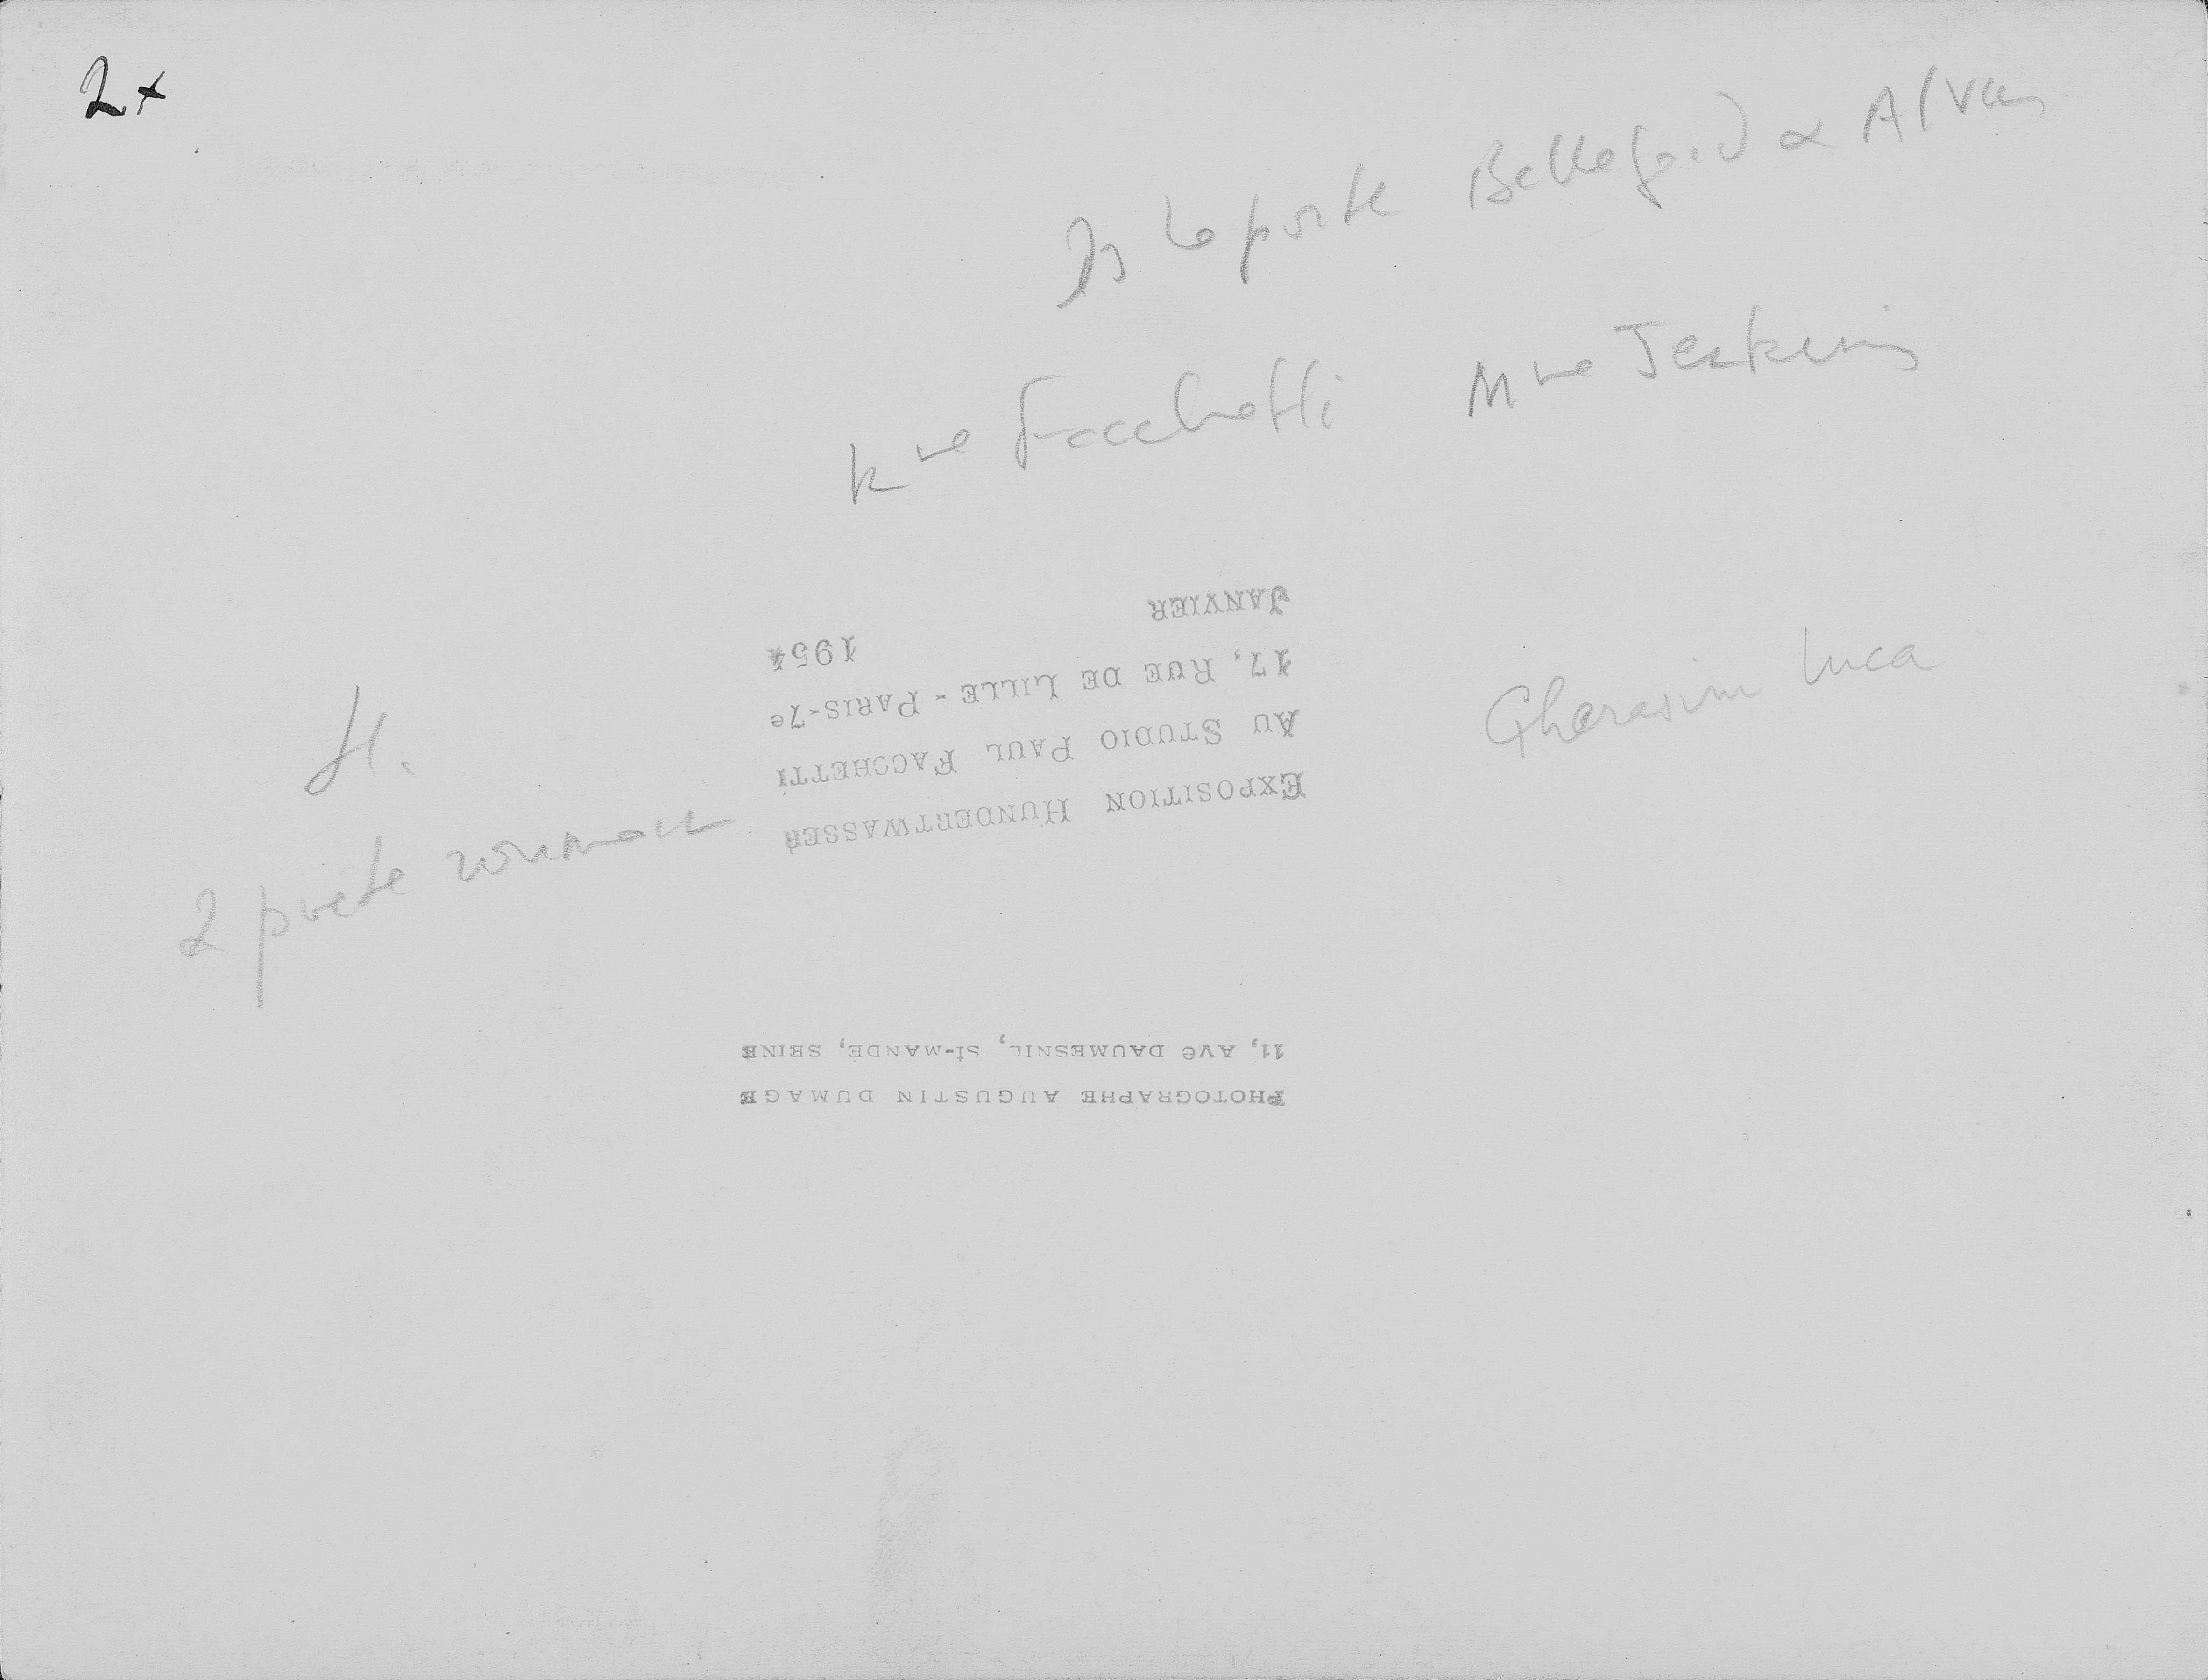 2x
à la porte Bellegarde & Alvan
Mme Facchetti Mme Jenkins
Gherasim Luca
H.
2 poete roumain
EXPOSITION HUNDERTWASSER
AU STUDIO PAUL FACCHETTI
17, RUE DE LILLE - PARIS-7e
JANVIER 1954
PHOTOGRAPHE AUGUSTIN DUMAGE
11, AVe DAUMESNIL, St-MANDÉ, SEINE